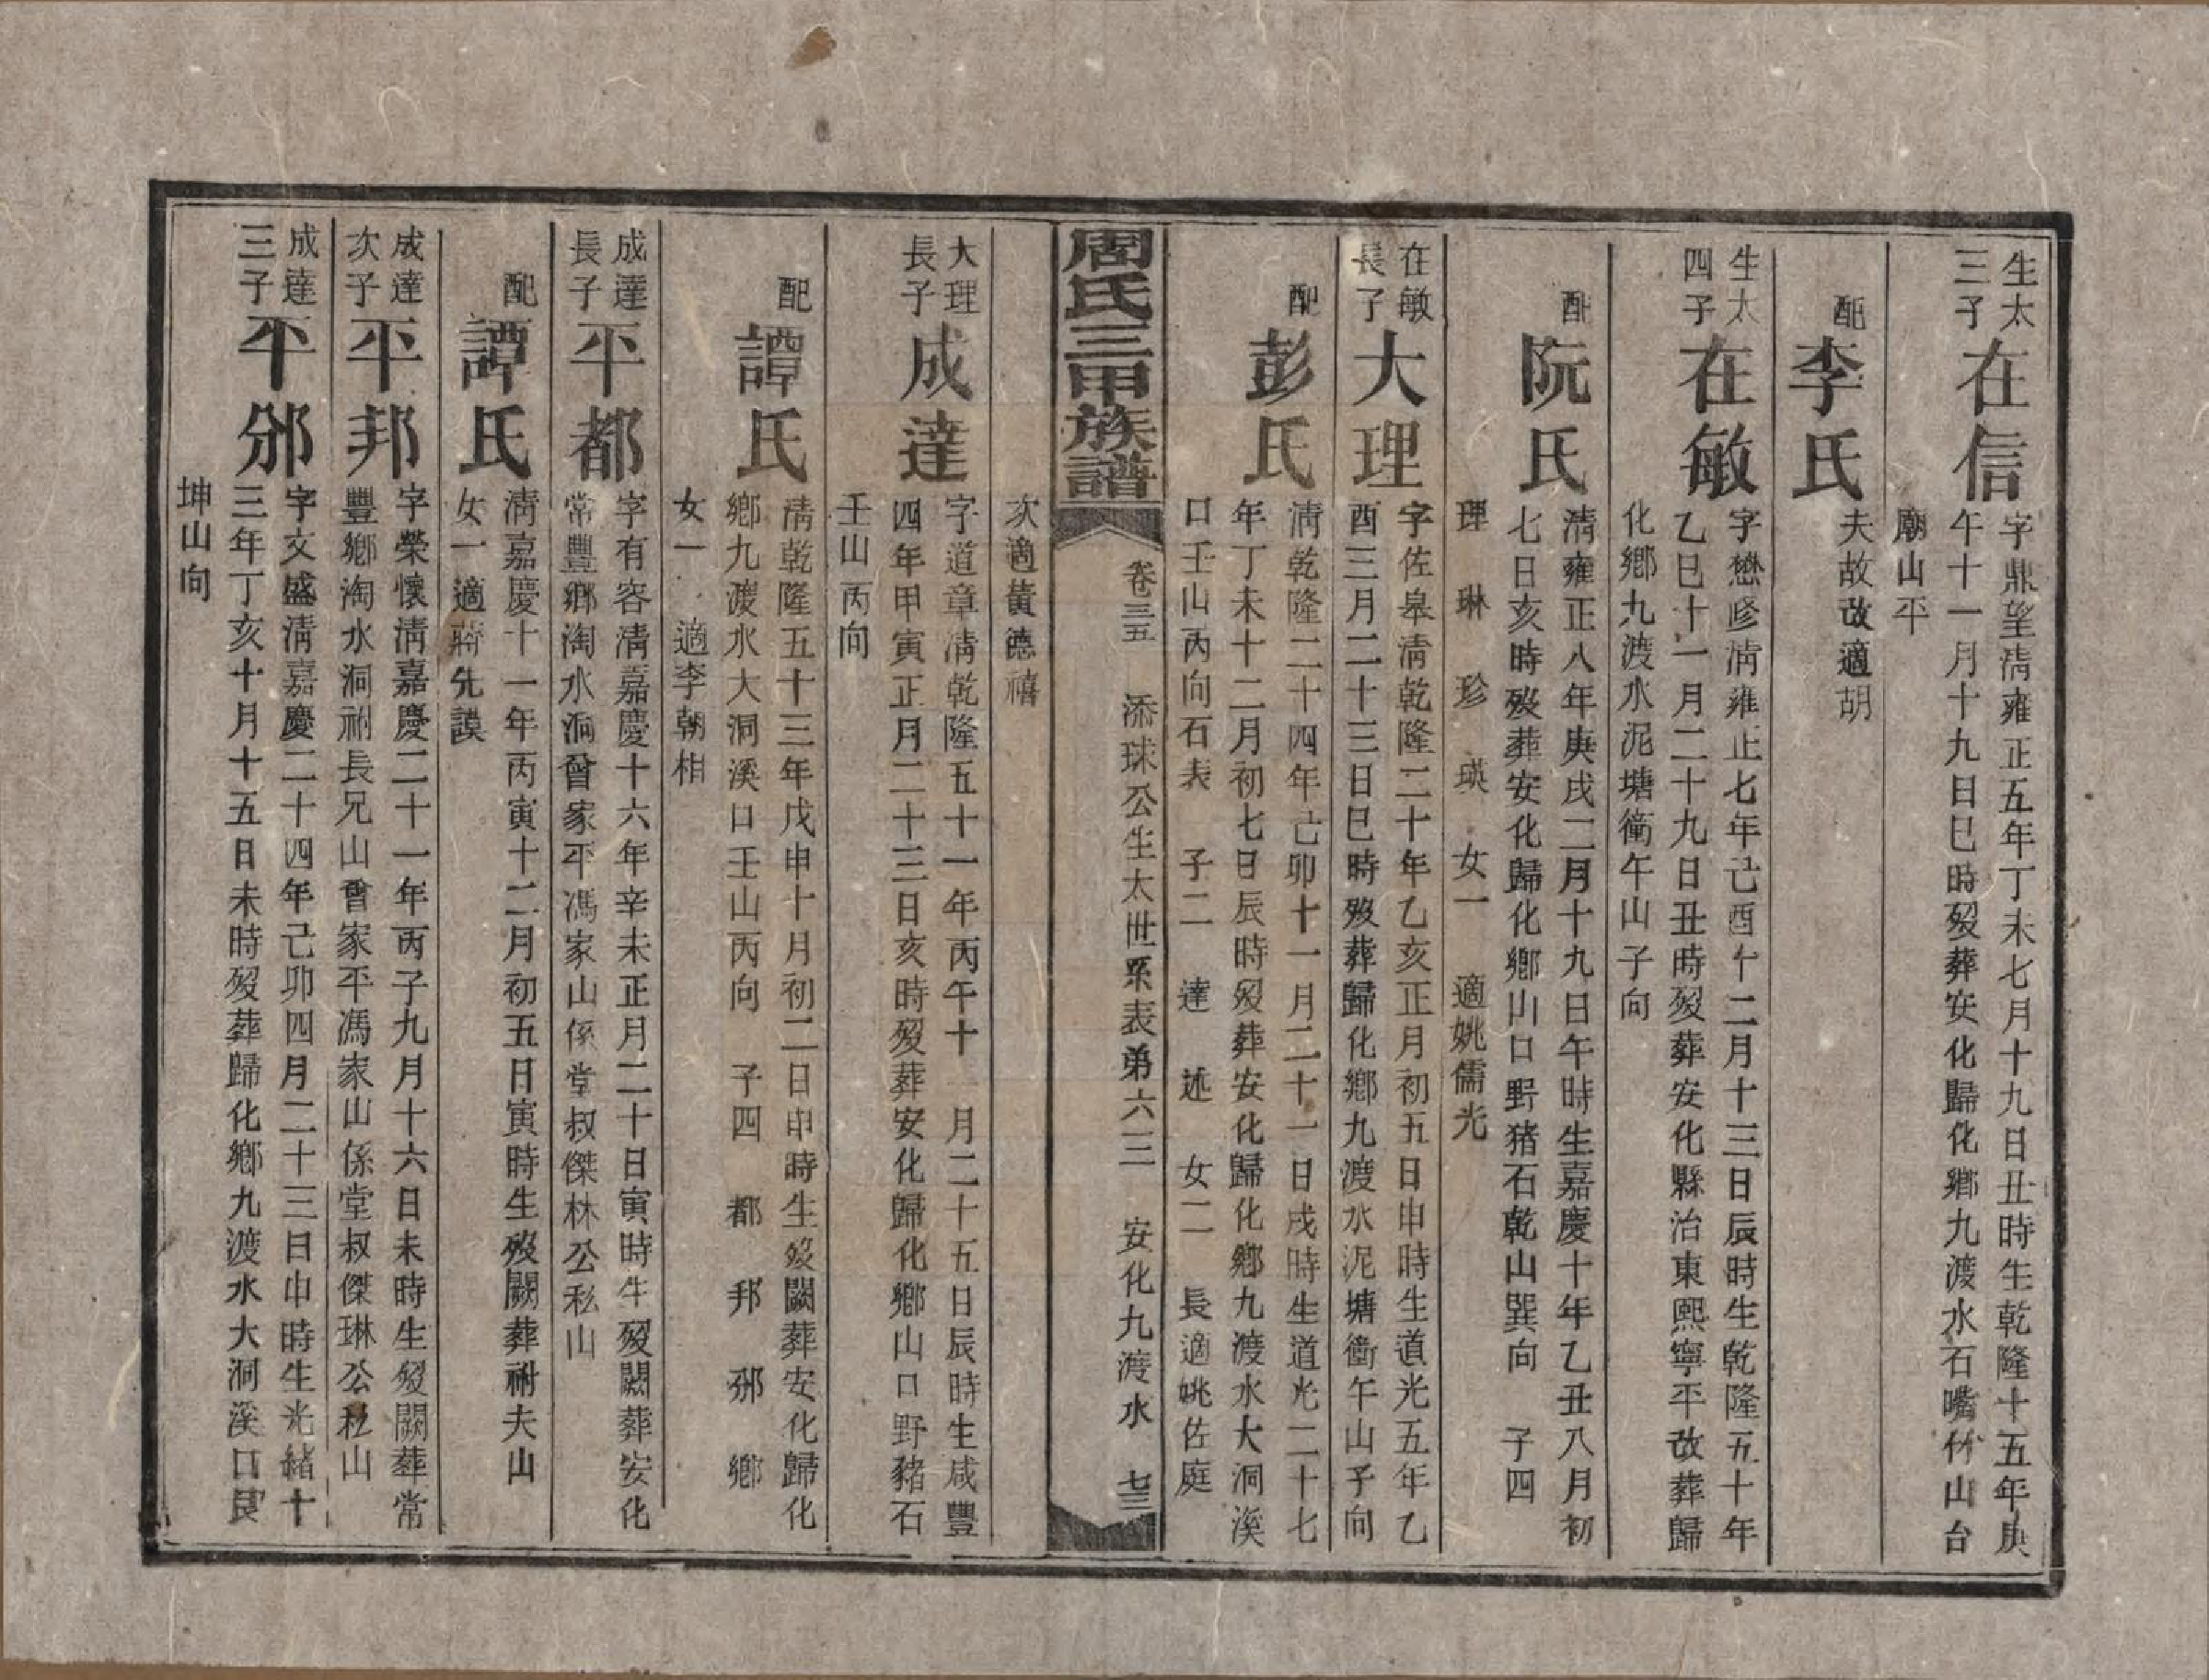 生太
三子
在信
字鼎望清雍正五年丁未七月十九日丑時生乾隆十五年庚
午十一月十九日巳時歿葬安化歸化鄉九渡水石嘴竹山台
廟山平
配
李氏
夫故改適胡
生太
四子
在敏
字懋修清雍正七年己酉十二月十三日辰時生乾隆五十年
乙巳十一月二十九日丑時歿葬安化縣治東熙寧平改葬歸
化鄉九渡水泥塘衝午山子向
配
阮氏
清雍正八年庚戌二月十九日午時生嘉慶十年乙丑八月初
七日亥時歿葬安化歸化鄉山口野猪石乾山巽向 子四
理 琳 珍 瑛 女一 適姚儒光
在敏
長子
大理
字佐皋清乾隆二十年乙亥正月初五日申時生道光五年乙
酉三月二十三日巳時歿葬歸化鄉九渡水泥塘衝午山子向
配
彭氏
清乾隆二十四年己卯十一月二十一日戌時生道光二十七
年丁未十二月初七日辰時歿葬安化歸化鄉九渡水大洞溪
口壬山丙向石表 子二 達 述 女二 長適姚佐庭
周氏三甲族譜
卷三五 添球公生太世系表弟六三 安化九渡水 七三
次適黃德禧
大理
長子
成達
字道章清乾隆五十一年丙午十一月二十五日辰時生咸豐
四年甲寅正月二十三日亥時歿葬安化歸化鄉山口野豬石
壬山丙向
配
譚氏
清乾隆五十三年戊申十月初二日申時生歿闕葬安化歸化
鄉九渡水大洞溪口壬山丙向 子四 都 邦 邠 鄉
女一 適李朝相
成達
長子
平都
字有容清嘉慶十六年辛未正月二十日寅時生歿闕葬安化
常豐鄉淘水洞曾家平馮家山係堂叔傑林公私山
配
譚氏
清嘉慶十一年丙寅十二月初五日寅時生歿闕葬祔夫山
女一適蔣先謨
成達
次子
平邦
字榮懷清嘉慶二十一年丙子九月十六日未時生歿闕葬常
豐鄉淘水洞祔長兄山曾家平馮家山係堂叔傑琳公私山
成達
三子
平邠
字文盛清嘉慶二十四年己卯四月二十三日申時生光緒十
三年丁亥十月十五日未時歿葬歸化鄉九渡水大洞溪口艮
坤山向